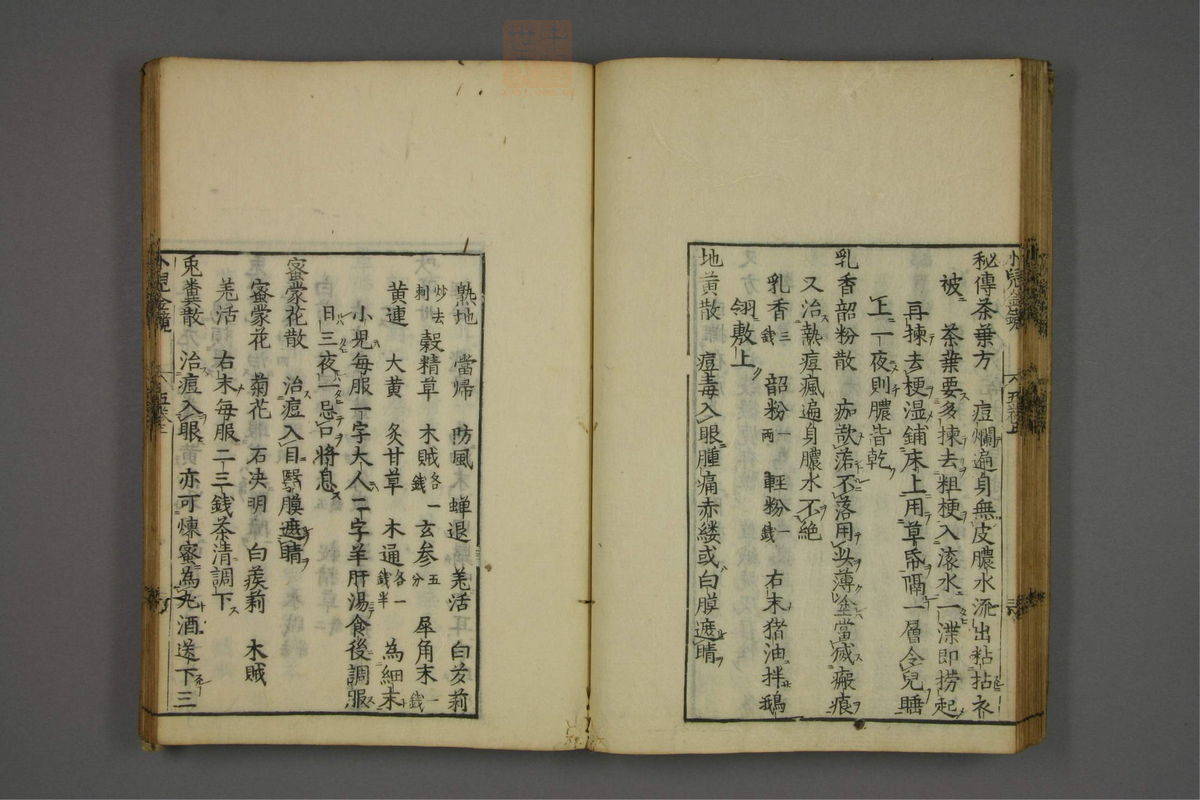 秘傳茶葉方　痘爛遍身無皮膿水流出粘拈衣
被　茶葉要多揀去粗梗入滚水一渫即撈起
再揀去梗湿鋪床上用草帋隔一層令兒睡
上一夜則膿皆乾
乳香韶粉散　痂欲落不落用此薄塗當滅瘢痕
又治熱瘴瘋遍身膿水不絶
乳香三錢　韶粉一兩　軽粉一錢　右末猪油拌鵝
翎敷上
地黄散　痘毒入眼腫痛赤縷或白膜遮睛
熟地　當帰　防風　蝉退　羗活　白蒺莉
炒去刺　穀精草　木賊各一錢　玄参五分　犀角末一錢
黄連　大黄　炙甘草　木通各一錢半　為細末
小児每服一字大人二字羊肝湯食後調服
日三夜一忌口將息
蜜蒙花散　治痘入目翳膜遮睛
蜜蒙花　菊花　石决明　白蒺莉　木賊
羗活　右末每服二三錢茶清調下
兎糞散　治痘入眼亦可煉蜜為丸酒送下三